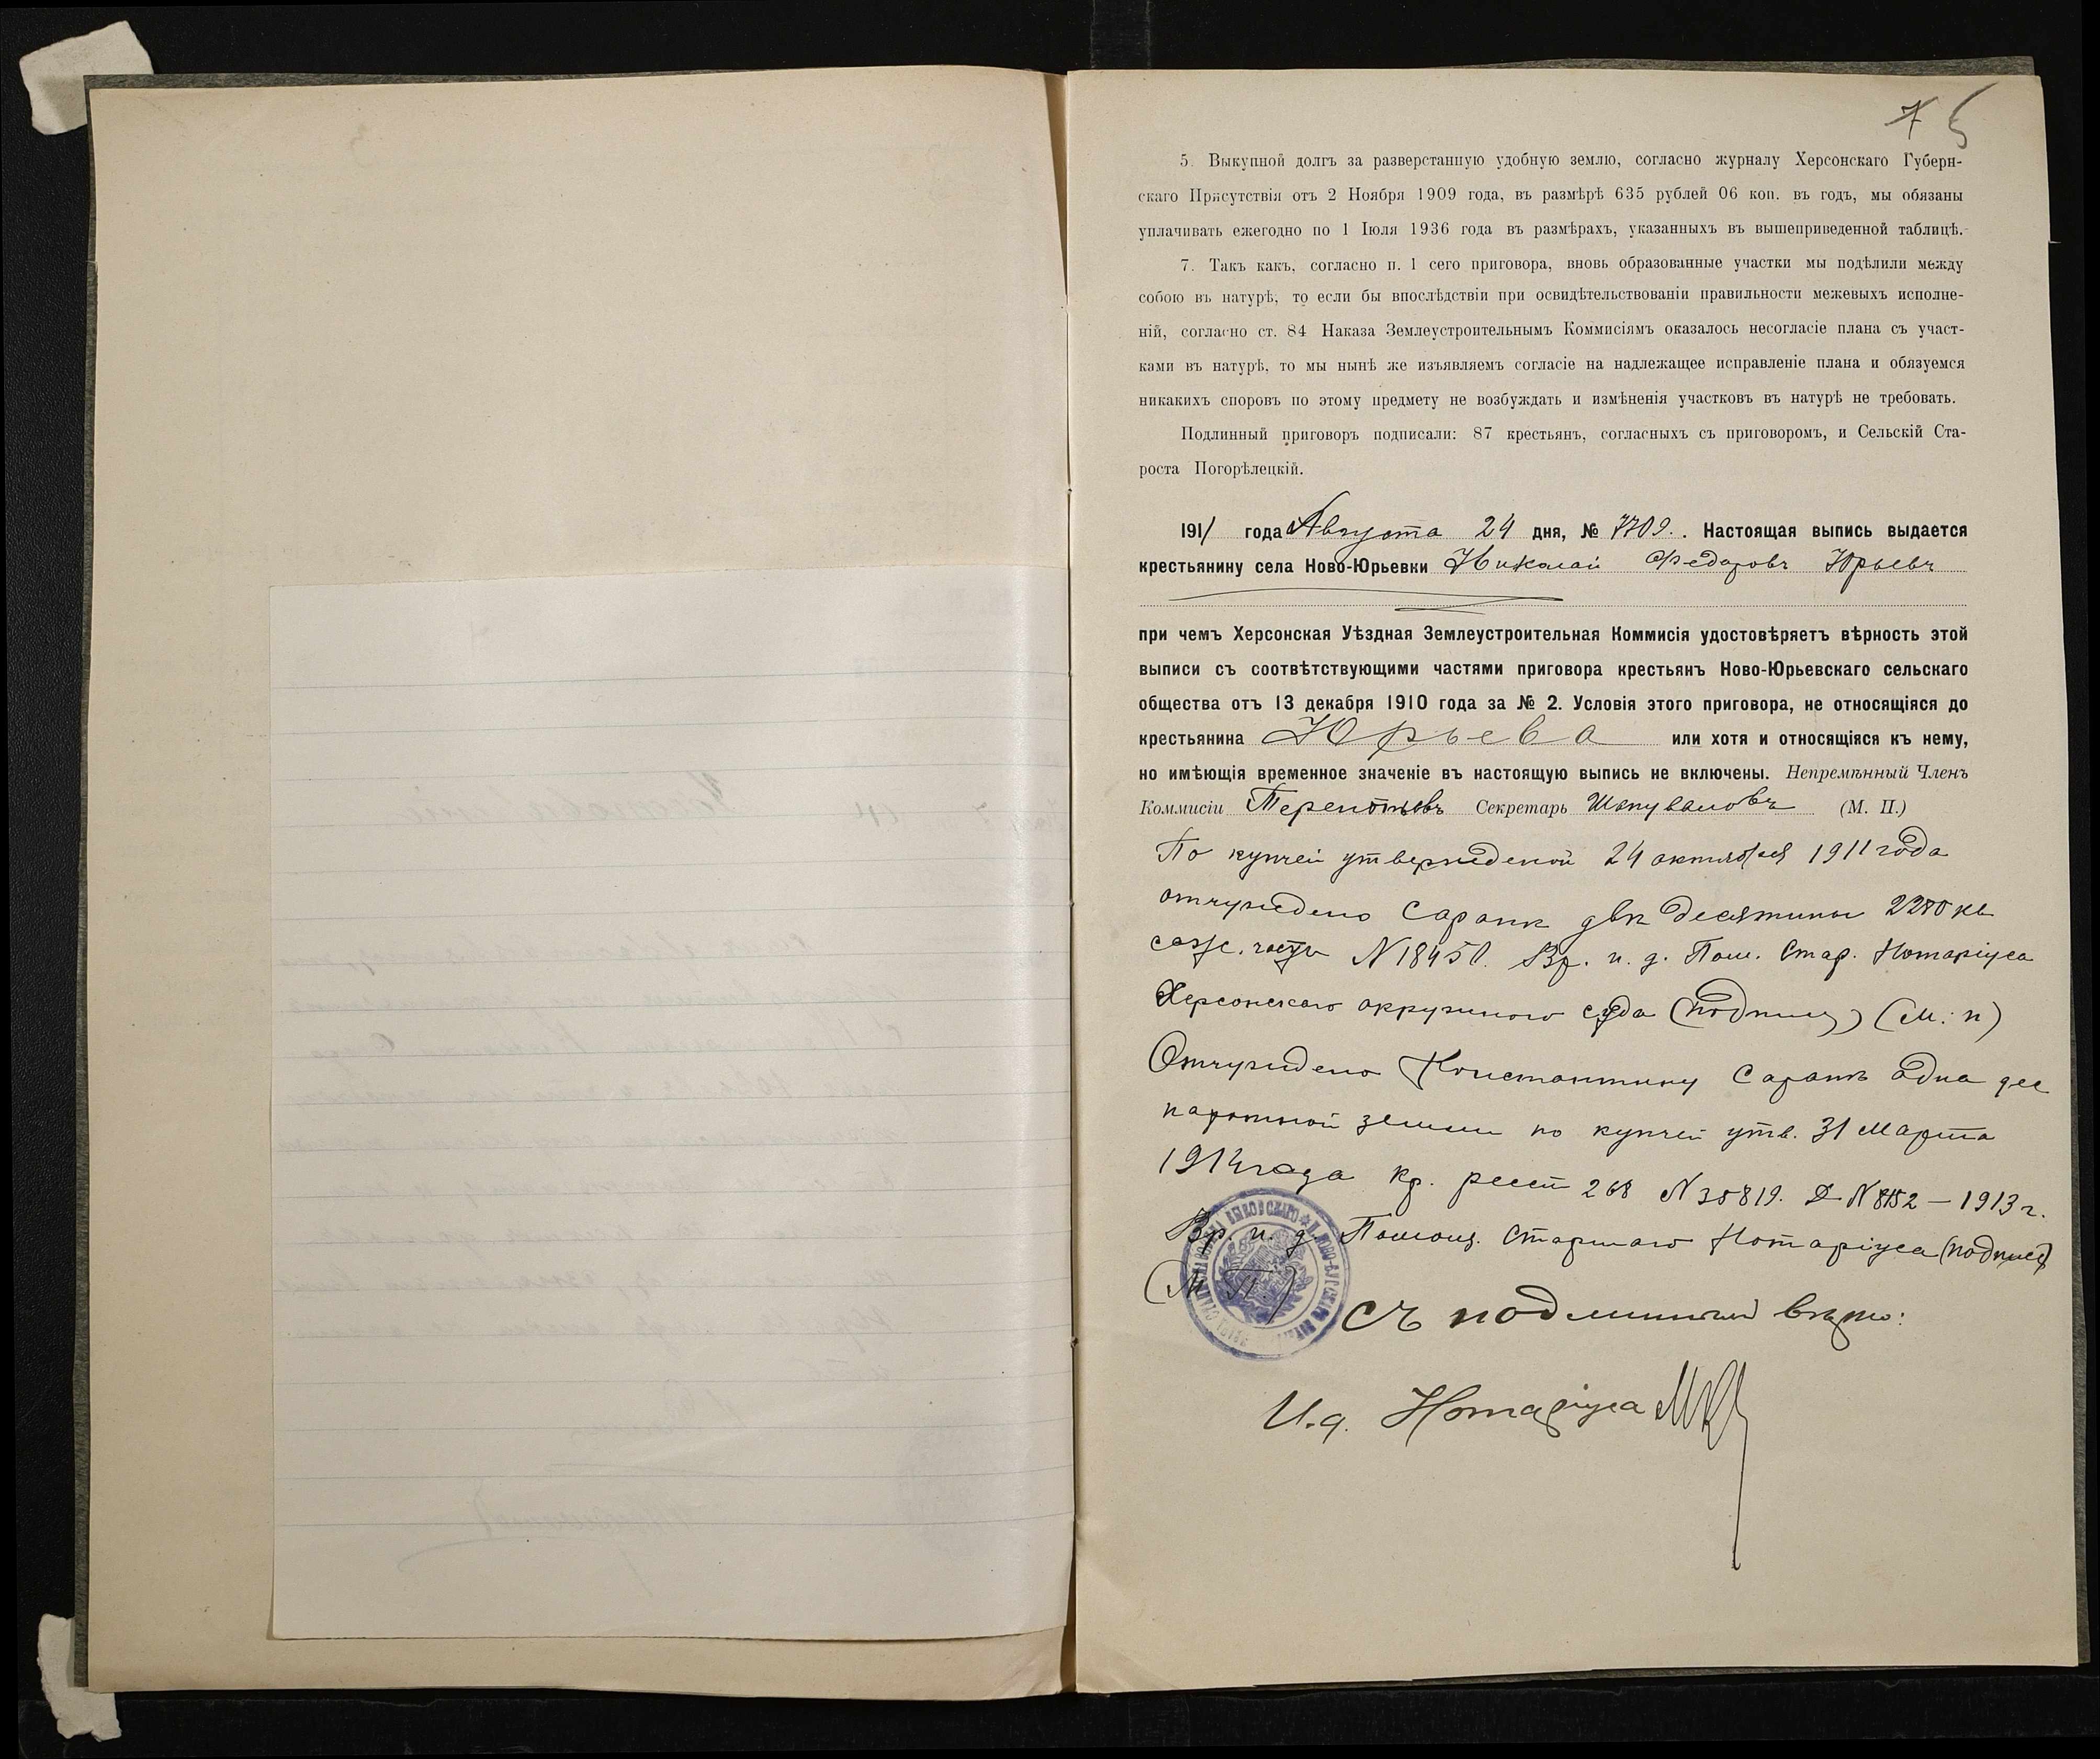 5. Выкупной долгъ за разверстанную удобную землю, согласно журналу Херсонскаго Губерн-
скаго Присутствія отъ 2 Ноября 1909 года, въ размѣрѣ 635 рублей 06 коп. въ годъ, мы обязаны
уплачивать ежегодно по 1 Іюля 1936 года въ размѣрахъ, указанныхъ въ вышеприведенной таблицѣ.
7. Такъ какъ, согласно п. 1 сего приговора, вновь образованные участки мы подѣлили между
собою въ натурѣ, то если бы впослѣдствіи при освидѣтельствованіи правильности межевыхъ исполне-
ній, согласно ст. 84 Наказа Землеустроительнымъ Коммисіямъ оказалось несогласіе плана съ участ-
ками въ натурѣ, то мы нынѣ же изъявляемъ согласіе на надлежащее исправленіе плана и обязуемся
никакихъ споровъ по этому предмету не возбуждать и измѣненія участковъ въ натурѣ не требовать.
Подлинный приговоръ подписали: 87 крестьянъ, согласныхъ съ приговоромъ, и Сельскій Ста-
роста Погорѣлецкій.
1911 года Августа 24 дня, № 7709. Настоящая выпись выдается
крестьянину села Ново-Юрьевки Николай Федоровъ Юрьевъ
при чемъ Херсонская Уѣздная Землеустроительная Коммисія удостовѣряетъ вѣрность этой
выписи съ соотвѣтствующими частями приговора крестьянъ Ново-Юрьевскаго сельскаго
общества отъ 13 декабря 1910 года за № 2. Условія этого приговора, не относящіяся до
крестьянина Юрьева или хотя и относящіяся къ нему,
но имѣющія временное значеніе въ настоящую выпись не включены. Непремѣнный Членъ
Коммисіи Терентьевъ Секретарь Шапуваловъ (М. П.)
По купчей утвержденой 24 октября 1911 года
отчуждено Саранѣ двѣ десятины 2280 кв
саж. N 18450. Вр. и. д. Пом. Стар. Нотаріуса
Херсонскаго окружного суда (подпись) (М. п)
Отчуждено Константину Саранѣ одна дес
пахотной земли по купчей утв. 31 Марта
1914 года кр. реест 268 N 35819. Д N 8152 – 1913 г.
Вр. и. д. Помощ. Старшаго Нотаріуса (подпись)
(М. П.)
Съ подлиннымъ вѣрно:
И. д. Нотаріуса